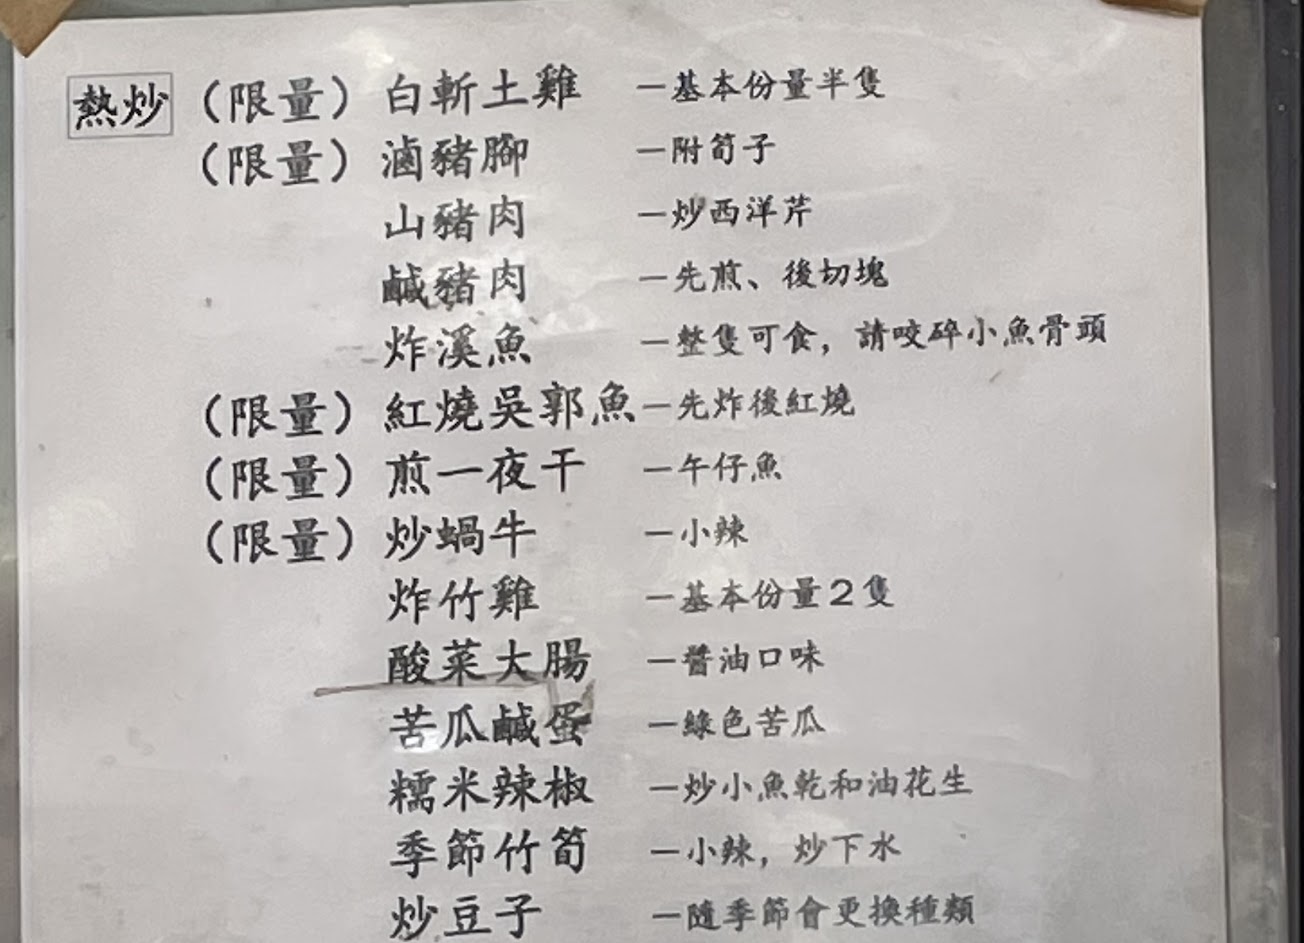 熱炒 （限量）白斬土雞 －基本份量半隻
（限量）滷豬腳 －附筍子
山豬肉 －炒西洋芹
鹹豬肉 －先煎、後切塊
炸溪魚 －整隻可食，請咬碎小魚骨頭
（限量）紅燒吳郭魚－先炸後紅燒
（限量）煎一夜干 －午仔魚
（限量）炒蝸牛 －小辣
炸竹雞 －基本份量２隻
酸菜大腸 －醬油口味
苦瓜鹹蛋 －綠色苦瓜
糯米辣椒 －炒小魚乾和油花生
季節竹筍 －小辣，炒下水
炒豆子 －隨季節會更換種類